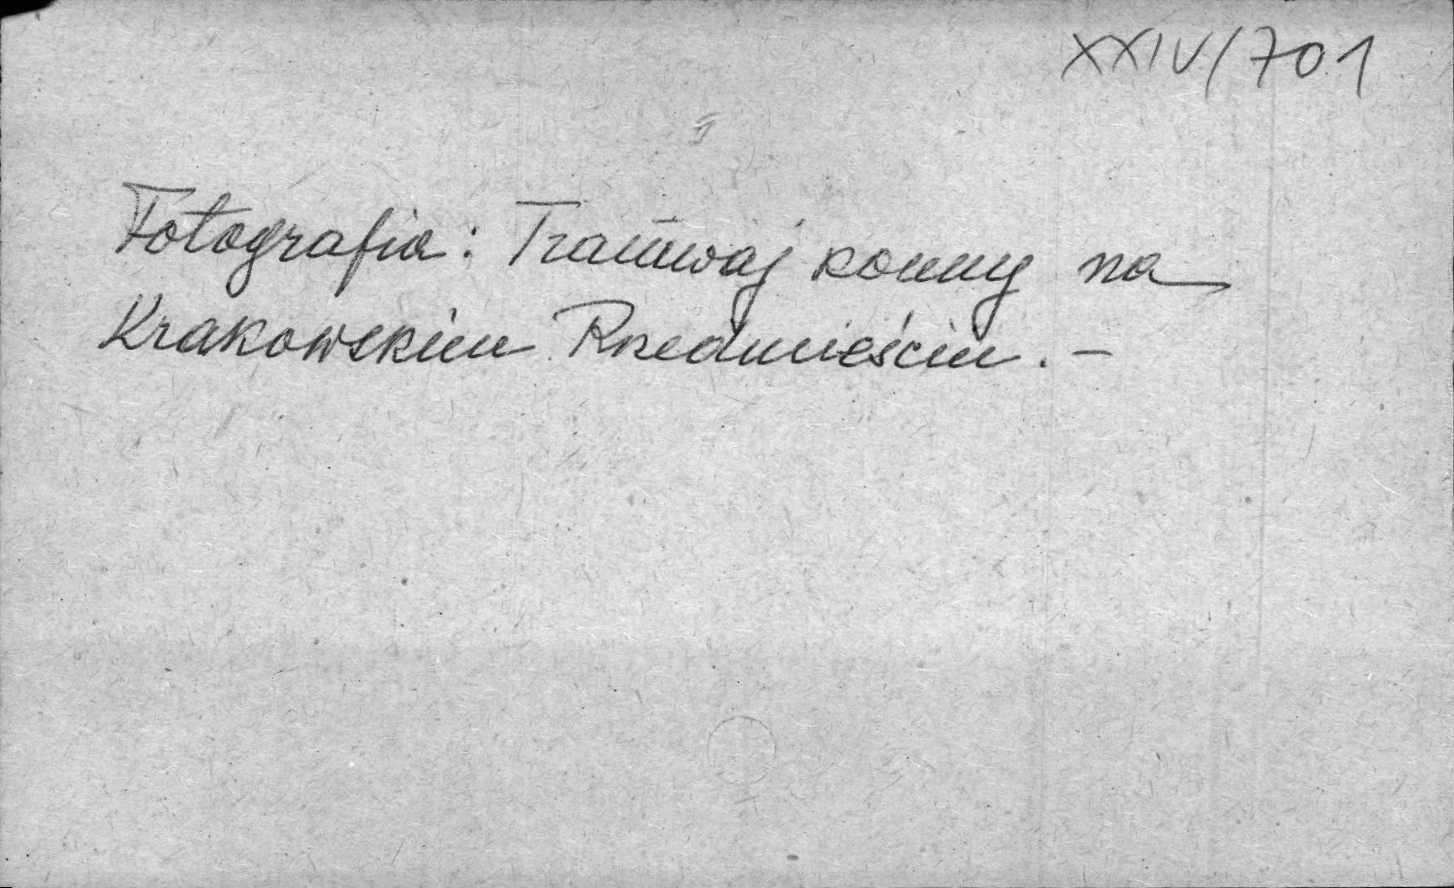 XXIV/701
Fotografia: Tramwaj konny na
Krakowskiem Przedmieściu. –